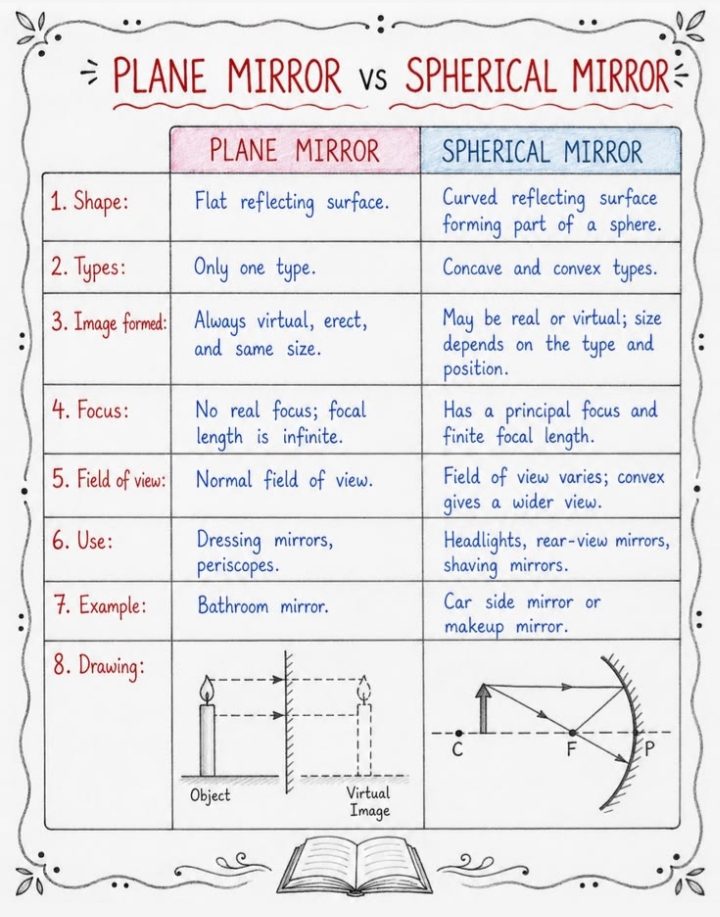 PLANE MIRROR vs SPHERICAL MIRROR
PLANE MIRROR
SPHERICAL MIRROR
1. Shape:
Flat reflecting surface.
Curved reflecting surface
forming part of a sphere.
2. Types:
Only one type.
Concave and convex types.
3. Image formed:
Always virtual, erect,
and same size.
May be real or virtual; size
depends on the type and
position.
4. Focus:
No real focus; focal
length is infinite.
Has a principal focus and
finite focal length.
5. Field of view:
Normal field of view.
Field of view varies; convex
gives a wider view.
6. Use:
Dressing mirrors,
periscopes.
Headlights, rear-view mirrors,
shaving mirrors.
7. Example:
Bathroom mirror.
Car side mirror or
makeup mirror.
8. Drawing:
Object
Virtual
Image
C
F
P